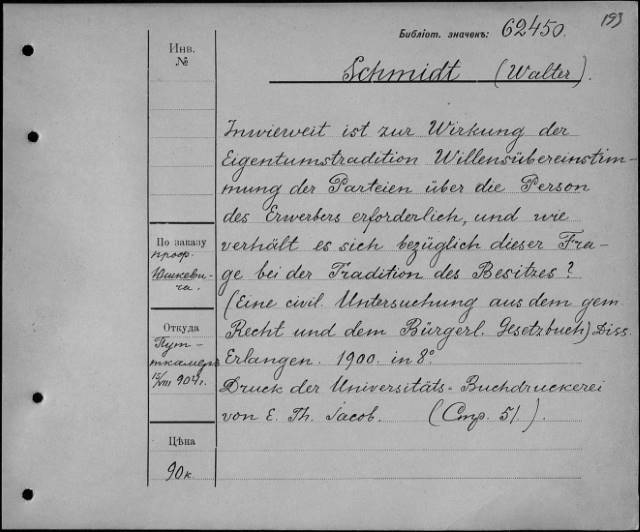 193
Библіот. значекъ: 62450.
Инв.
№
Schmidt (Walter).
Inwierweit ist zur Wirkung der
Eigentumstradition Willensübereinstim-
mung der Parteien über die Person
des Erwerbers erforderlich, und wie
verhält es sich bezüglich dieser Fra-
ge bei der Tradition des Besitzes?
(Eine civil. Untersuchung aus dem gem.
Recht und dem Bürgerl. Gesetzbuch) Diss.
Erlangen. 1900. in 8°.
Druck der Universitäts-Buchdruckerei
von E. Th. Jacob. (Стр. 51.).
По заказу
проф.
Юшкеви-
ча.
Откуда
Пут-
ткамеръ
15/VIII 904 г.
Цѣна
90 к